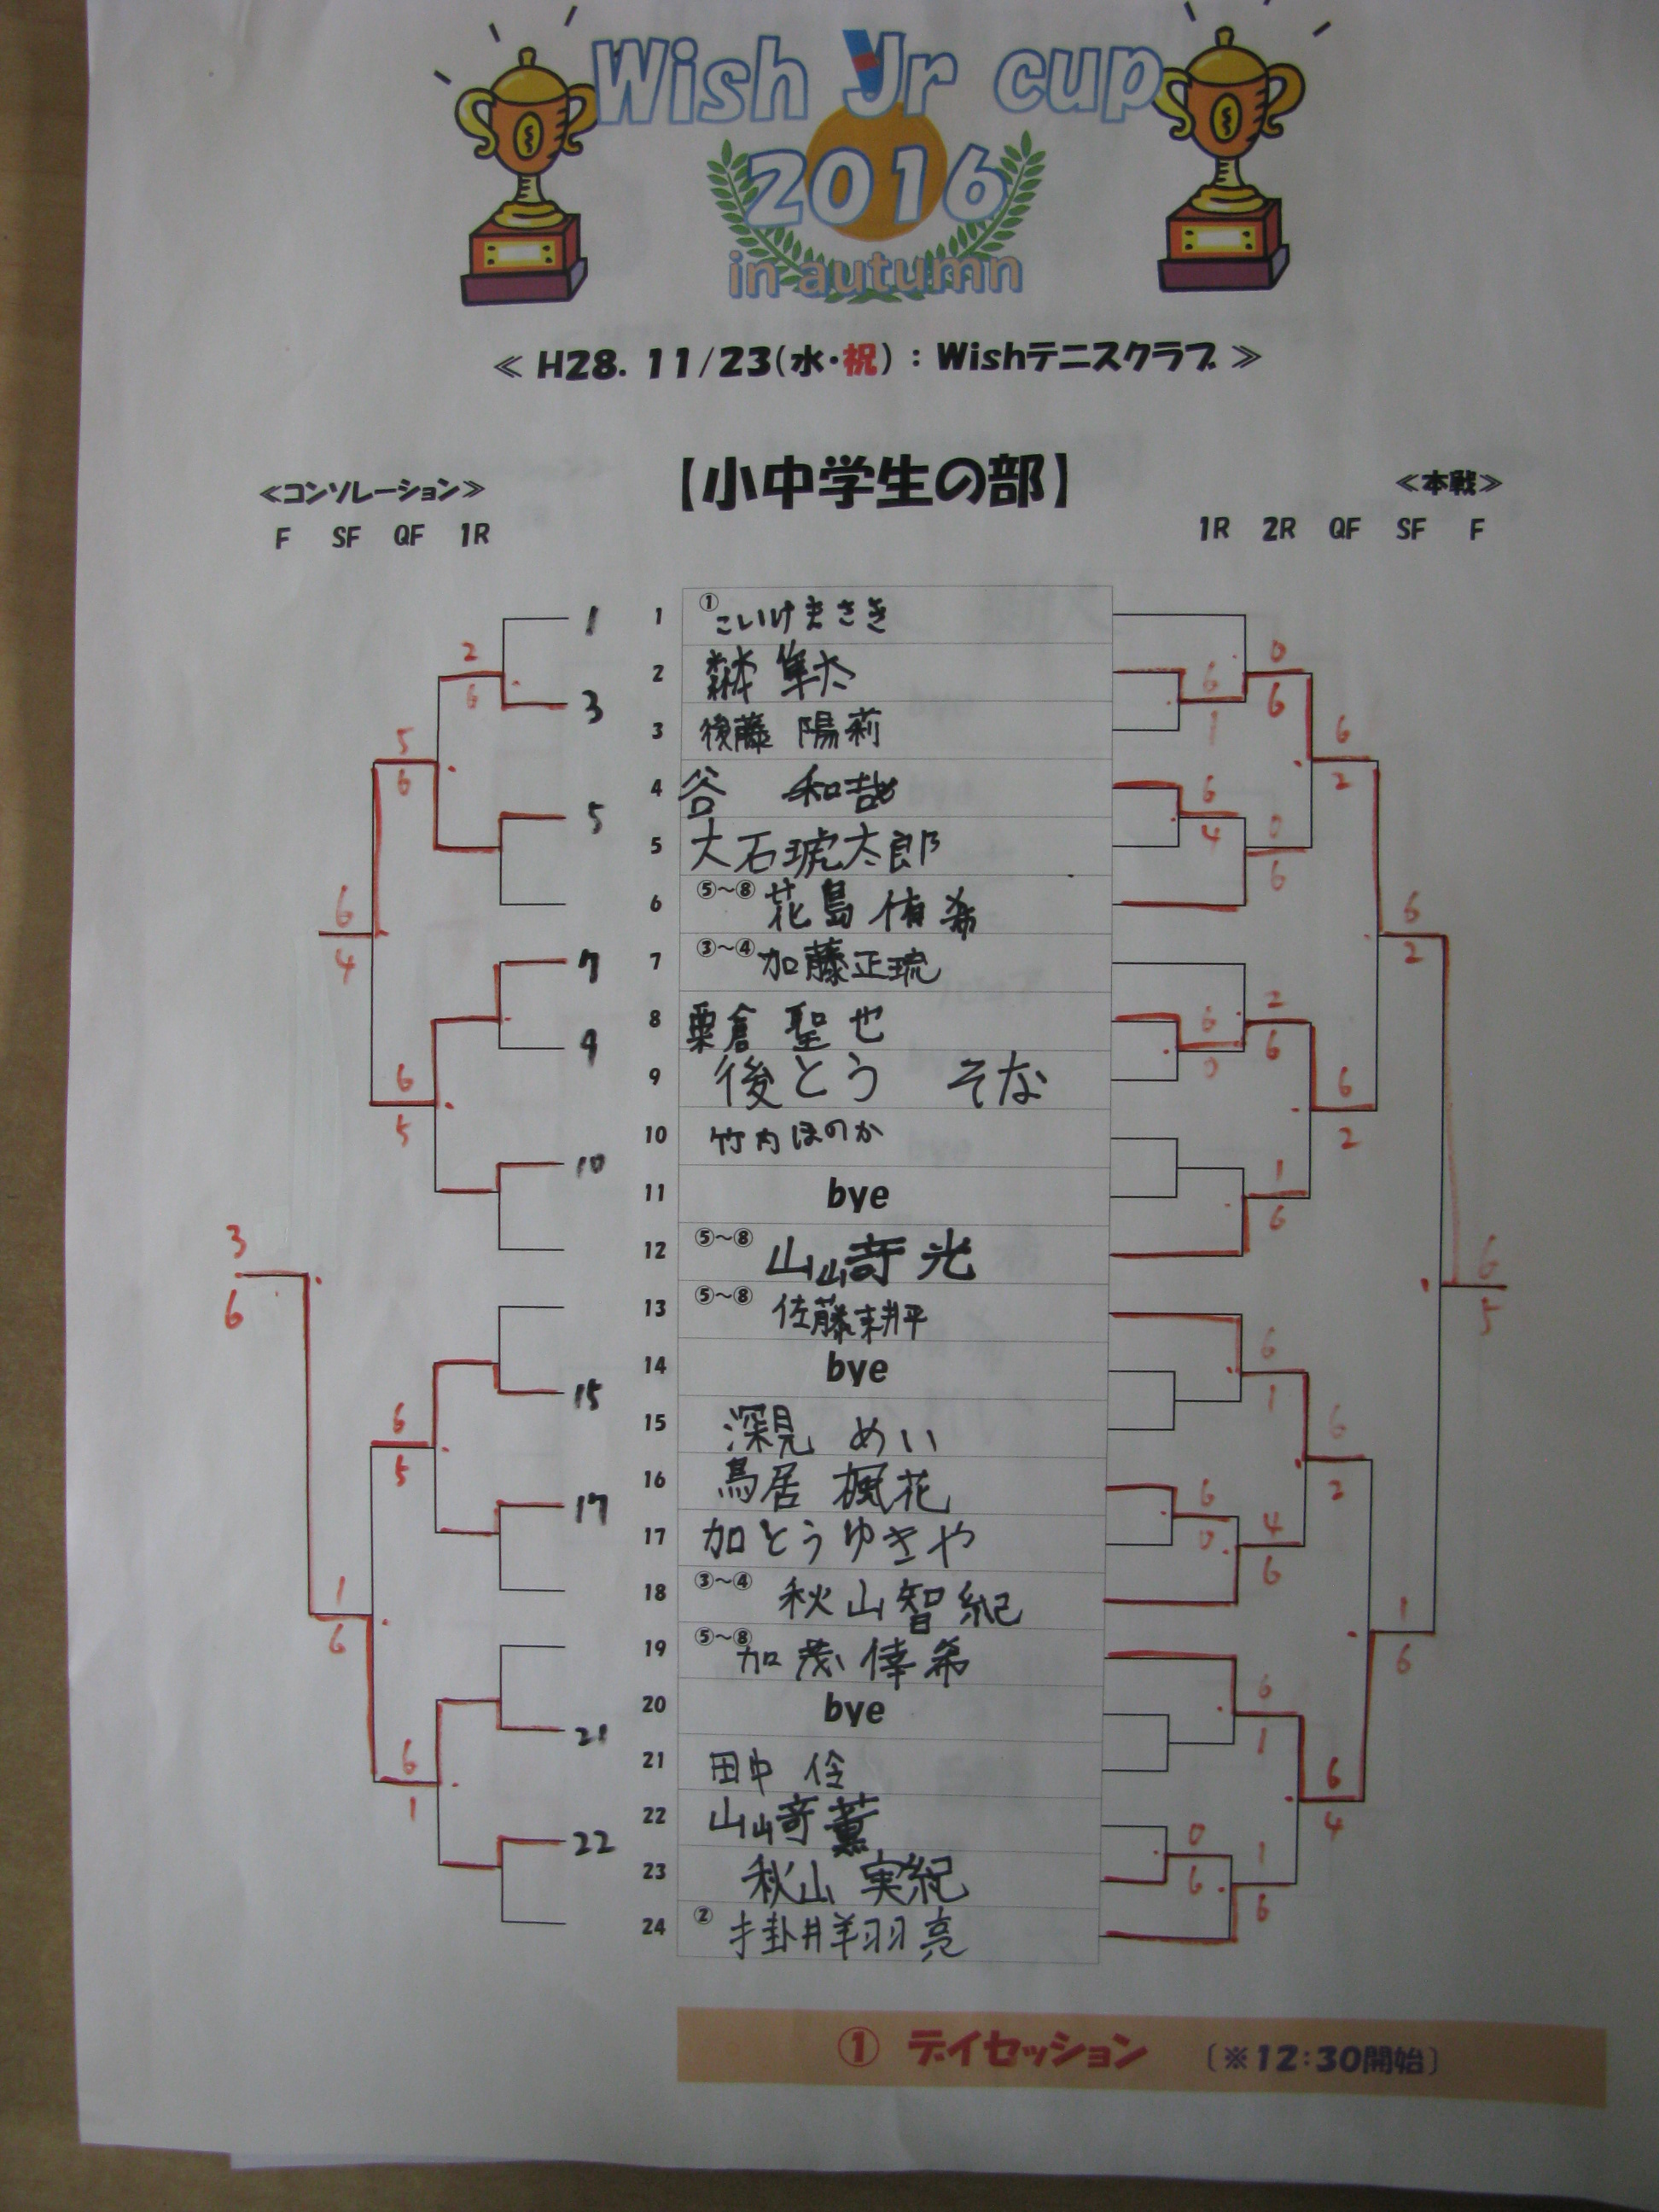 Wish Jr cup
2016
in autumn
≪ H28. 11/23(水・祝) : Wishテニスクラブ ≫
≪コンソレーション≫ 【小中学生の部】 ≪本戦≫
F SF QF 1R 1R 2R QF SF F
1 1 ① こいけまさき
2 森本 隼太
3 3 後藤 陽莉
4 谷 和哉
5 5 大石琥太郎
6 ⑤~⑧ 花島 侑希
7 7 ③~④ 加藤正琉
8 粟倉 聖也
9 9 後とう そな
10 10 竹内ほのか
11 bye
12 ⑤~⑧ 山﨑 光
13 ⑤~⑧ 佐藤耕平
14 bye
15 15 深見 めい
16 鳥居 楓花
17 17 加とうゆきや
18 ③~④ 秋山智紀
19 ⑤~⑧ 加茂倖希
20 bye
21 21 田中 伶
22 22 山﨑薫
23 秋山 実紀
24 ② 掛井翔亮
2 6
5 6
6 4
6 5
3 6
6 5
1 6
6 1
6 1
0 6
6 4
0 6
6 2
6 2
6 0
2 6
1 6
6 2
6 5
6 1
6 0
4 6
6 2
1 6
6 1
0 6
1 6
6 4
① デイセッション 〔※12:30開始〕